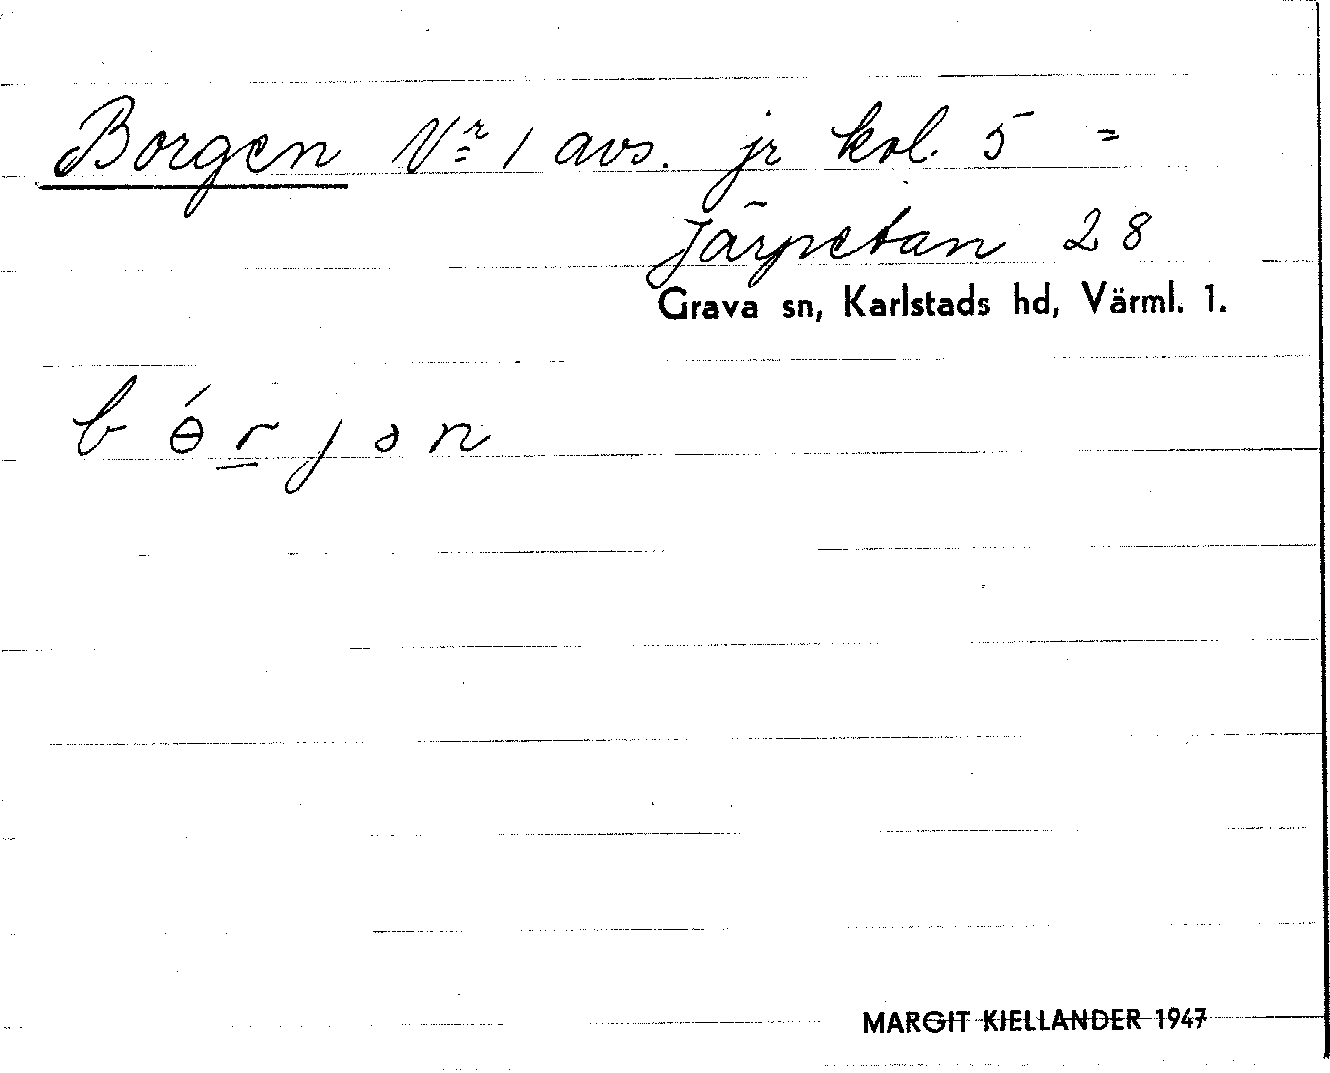 Borgen Nr 1 avs. jr kol. 5 =
Järpetan 28
Grava sn, Karlstads hd, Värml. 1.
b ɵ́ r̲ j ə n
MARGIT KIELLANDER 1947